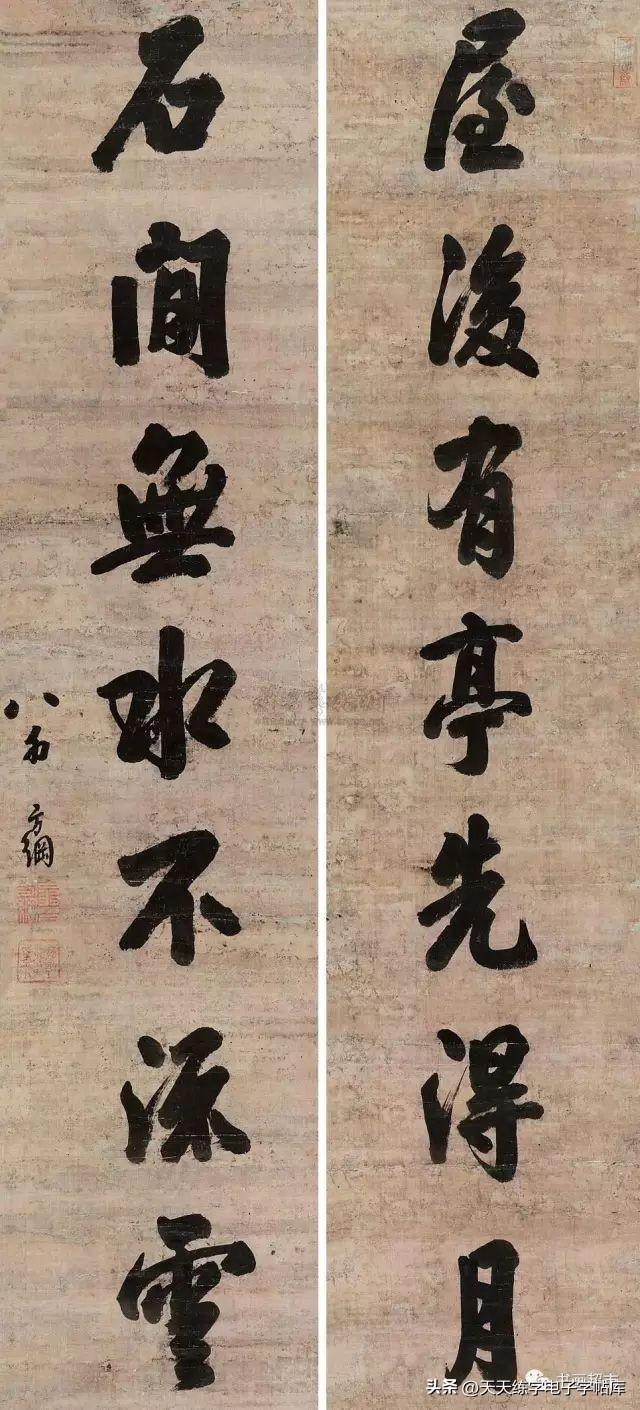 屋後有亭先得月
石間無水不流雲
翁方綱
书画超市
头条 @天天练字电子字帖库